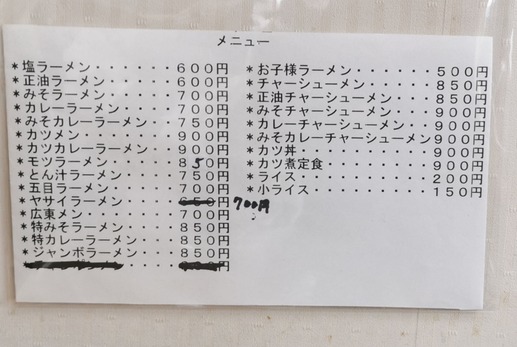 メニュー
*塩ラーメン・・・・・・600円
*正油ラーメン・・・・・600円
*みそラーメン・・・・・700円
*カレーラーメン・・・・700円
*みそカレーラーメン・・750円
*カツメン・・・・・・・900円
*カツカレーラーメン・・900円
*モツラーメン・・・・・850円
*とん汁ラーメン・・・・750円
*五目ラーメン・・・・・700円
*ヤサイラーメン・・・・円 700円
*広東メン・・・・・・・700円
*特みそラーメン・・・・850円
*特カレーラーメン・・・850円
*ジャンボラーメン・・・850円
*お子様ラーメン・・・・・・500円
*チャーシューメン・・・・・850円
*正油チャーシューメン・・・850円
*みそチャーシューメン・・・900円
*カレーチャーシューメン・・900円
*みそカレーチャーシューメン900円
*カツ丼・・・・・・・・・・900円
*カツ煮定食・・・・・・・・900円
*ライス・・・・・・・・・・200円
*小ライス・・・・・・・・・150円